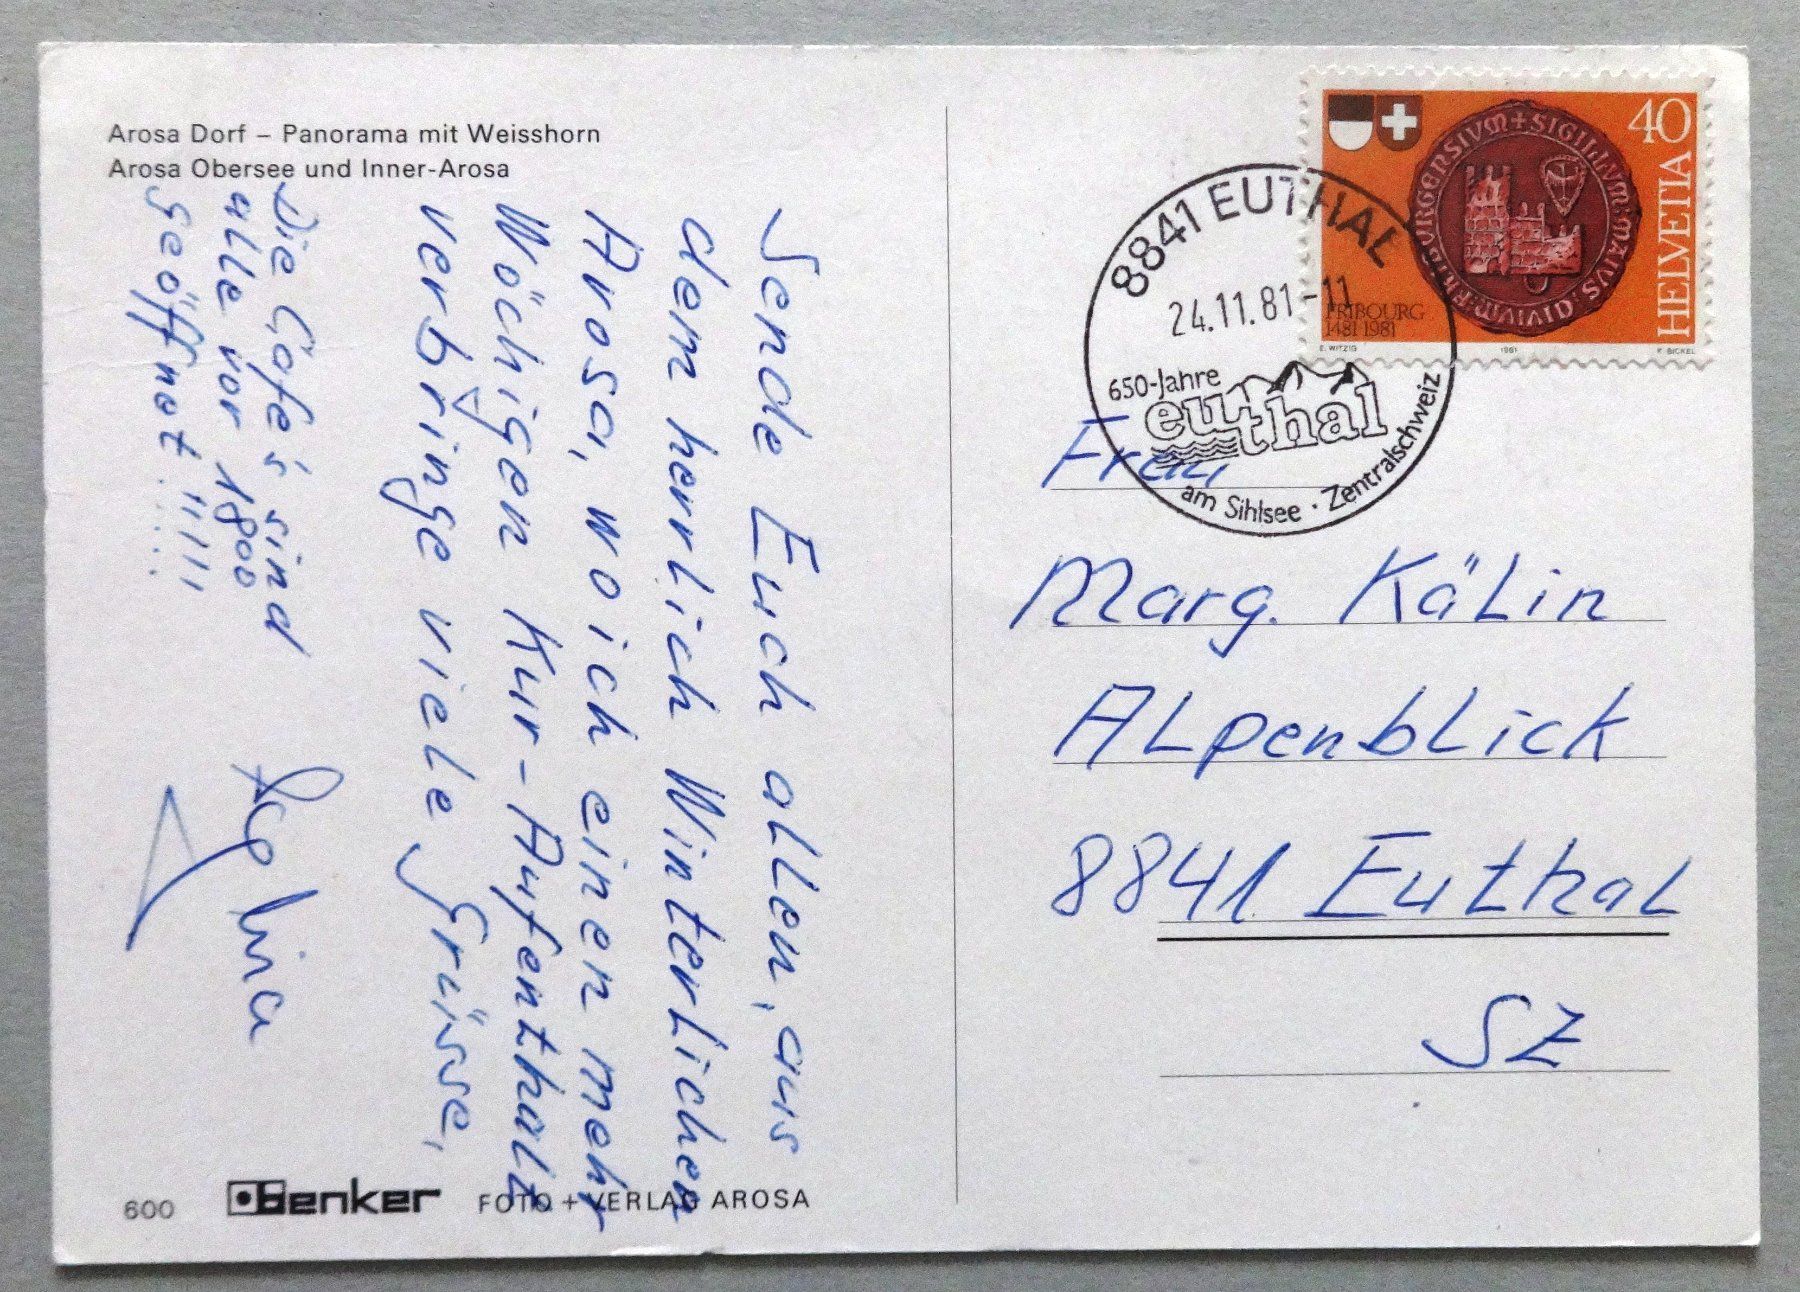 Arosa Dorf – Panorama mit Weisshorn
Arosa Obersee und Inner-Arosa
Sende Euch allen, aus
dem herrlich Winterlichen
Arosa, wo ich einen mehr
Wöchigen Kur-Aufenthalt
verbringe viele Grüsse,
Die Cafe's sind
alle vor 1800
geöffnet.....!!!!!
600
Benker FOTO + VERLAG AROSA
8841 EUTHAL
24.11.81-11
650-Jahre
euthal
am Sihlsee · Zentralschweiz
40
HELVETIA
FRIBOURG
1481 1981
E. WITZIG 1981 K. BICKEL
Frau
Marg. Kälin
Alpenblick
8841 Euthal
SZ